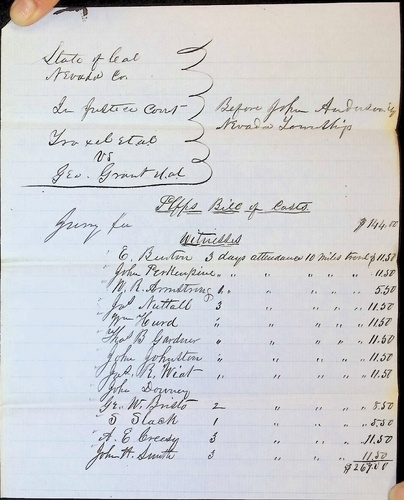 State of Cal
Nevada Co.
In Justice Court
Before John Anderson
Nevada Township
Troxel et al
vs
Geo. Grant et al
Plffs Bill of Costs
Jury fee $144.00
Witnesses
" E. Benton 3 days attendance 10 miles travel $11.50
" John Perkenpine " " " " " 11.50
" W. R. Armstrong 1 " " " " 5.50
" Jas Nuttall 3 " " " " 11.50
" Wm Hurd " " " " " 11.50
" Thos B Gardner " " " " " 11.50
" John Johnston " " " " " 11.50
" Jas. R. Wiat " " " " " 11.50
" John Downey
" Geo W. Bristo 2 " " " 5.50
" S Slack 1 " " " 5.50
" A. E Creesy 3 " " " 11.50
John H. Smith 3 " " " 11.50
$269.00